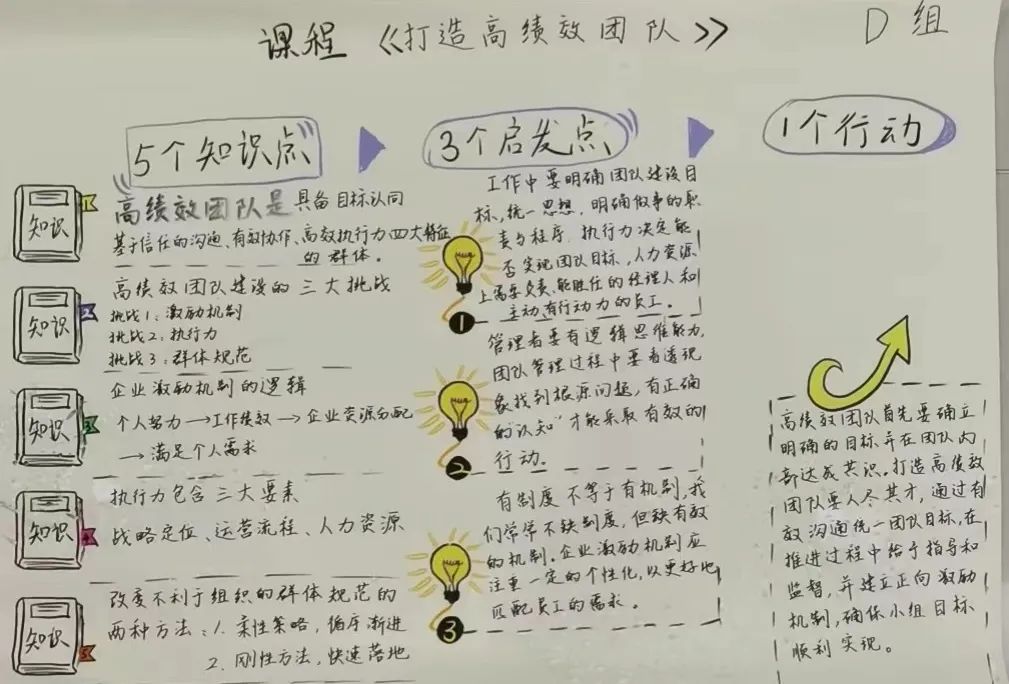 课程 《打造高绩效团队》
D组
5个知识点
3个启发点
1个行动
知识
1
高绩效团队是具备目标认同
基于信任的沟通、有效协作、高效执行力四大特征
的群体。
知识
2
高绩效团队建设的三大挑战
挑战1：激励机制
挑战2：执行力
挑战3：群体规范
知识
3
企业激励机制的逻辑
个人努力→工作绩效→企业资源分配
→满足个人需求
知识
4
执行力包含三大要素
战略定位、运营流程、人力资源
知识
5
改变不利于组织的群体规范的
两种方法：1. 柔性策略，循序渐进
2. 刚性方法，快速落地
1
工作中要明确团队建设目
标，统一思想，明确做事的职
责与程序，执行力决定能
否实现团队目标，人力资源
上需要负责、能胜任的经理人和
主动、有行动力的员工。
2
管理者要有逻辑思维能力，
团队管理过程中要看透现
象找到根源问题，有正确
的“认知”才能采取有效的
行动。
3
有制度不等于有机制，我
们常常不缺制度，但缺有效
的机制。企业激励机制应
注重一定的个性化，以更好地
匹配员工的需求。
高绩效团队首先要确立
明确的目标并在团队内
部达成共识。打造高绩效
团队要人尽其才，通过有
效沟通统一团队目标，在
推进过程中给予指导和
监督，并建立正向激励
机制，确保小组目标
顺利实现。